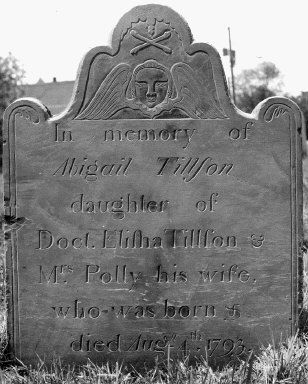 In memory of
Abigail Tillſon
daughter of
Doct. Eliſha Tillſon &
Mrs Polly his wife,
who was born &
died Augſt 4th 1793.